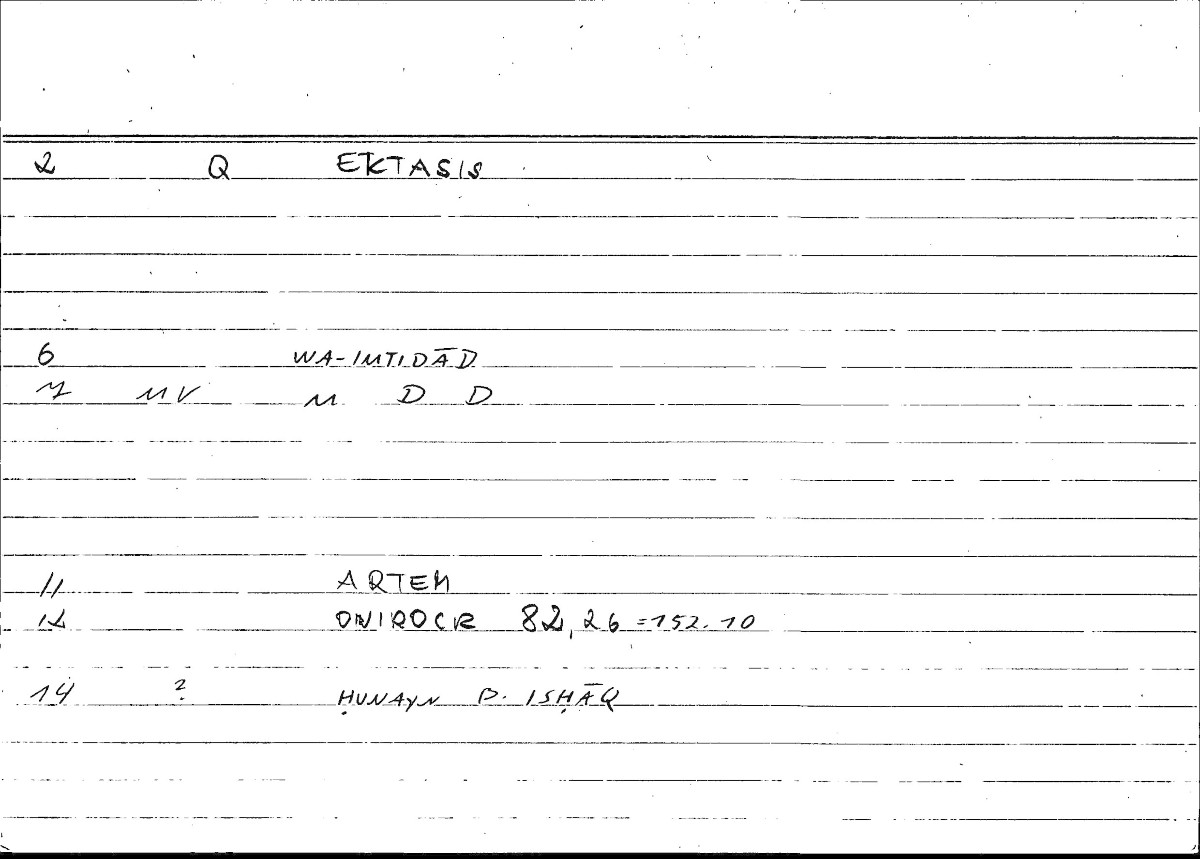 2 Q EKTASIS
6 WA-IMTIDĀD
7 MV M D D
11 ARTEM
12 ONIROCR 82,26 =152.10
14 ? ḤUNAYN B. ISḤĀQ